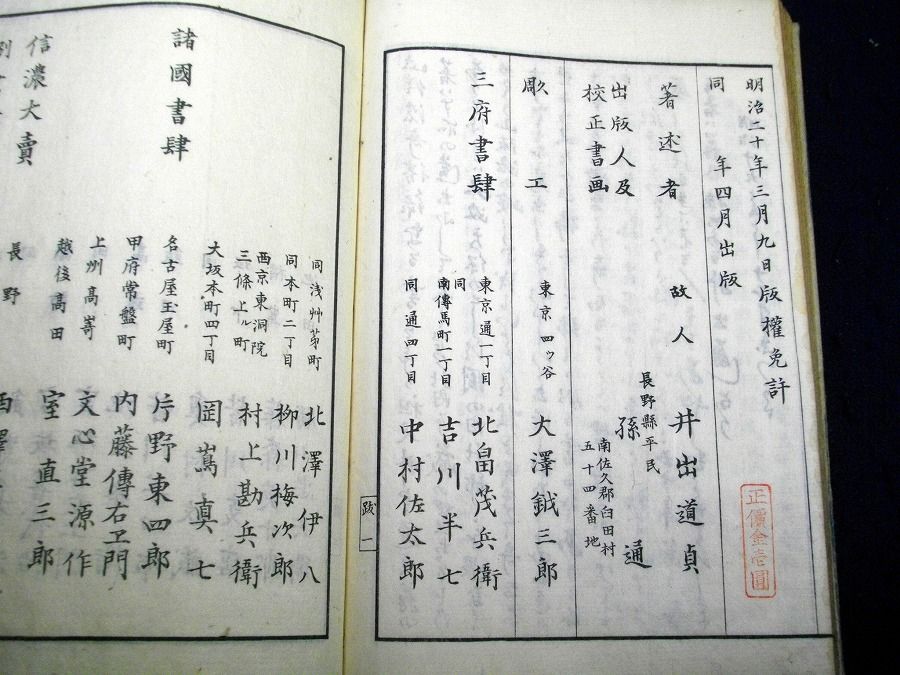 明治二十年三月九日版權免許
同　年四月出版
正價金壱圓
著述者　故人　井出道貞
出版人及
校正書画
長野縣平民
孫　通
南佐久郡臼田村
五十四番地
彫工　東京四ッ谷　大澤鉞三郎
三府書肆
東京通一丁目　北畠茂兵衛
同南傳馬町一丁目　吉川半七
同通四丁目　中村佐太郎
跋一
同浅艸茅町　北澤伊八
同本町二丁目　柳川梅次郎
西京東洞院三條上ル町　村上勘兵衛
大坂本町四丁目　岡嶌真七
諸國書肆
名古屋玉屋町　片野東四郎
甲府常盤町　内藤傳右エ門
上州高嵜　文心堂源作
越後高田　室直三郎
信濃大賣
長野　西澤